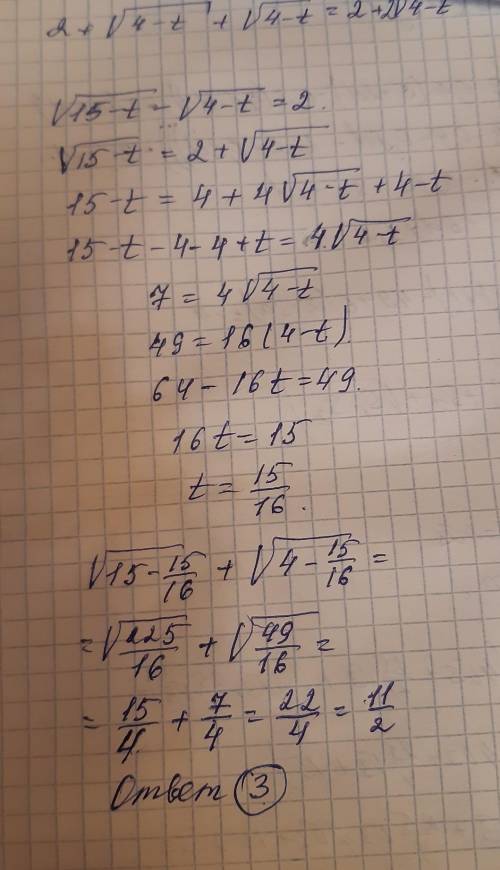 2 + √4-t + √4-t = 2 + 2√4-t
√15-t - √4-t = 2.
√15-t = 2 + √4-t
15-t = 4 + 4√4-t + 4-t
15-t-4-4+t = 4√4-t
7 = 4√4-t
49 = 16(4-t)
64 - 16t = 49.
16t = 15
t = 15/16.
√15-15/16 + √4-15/16 =
= √225/16 + √49/16 =
= 15/4 + 7/4 = 22/4 = 11/2
Ответ 3